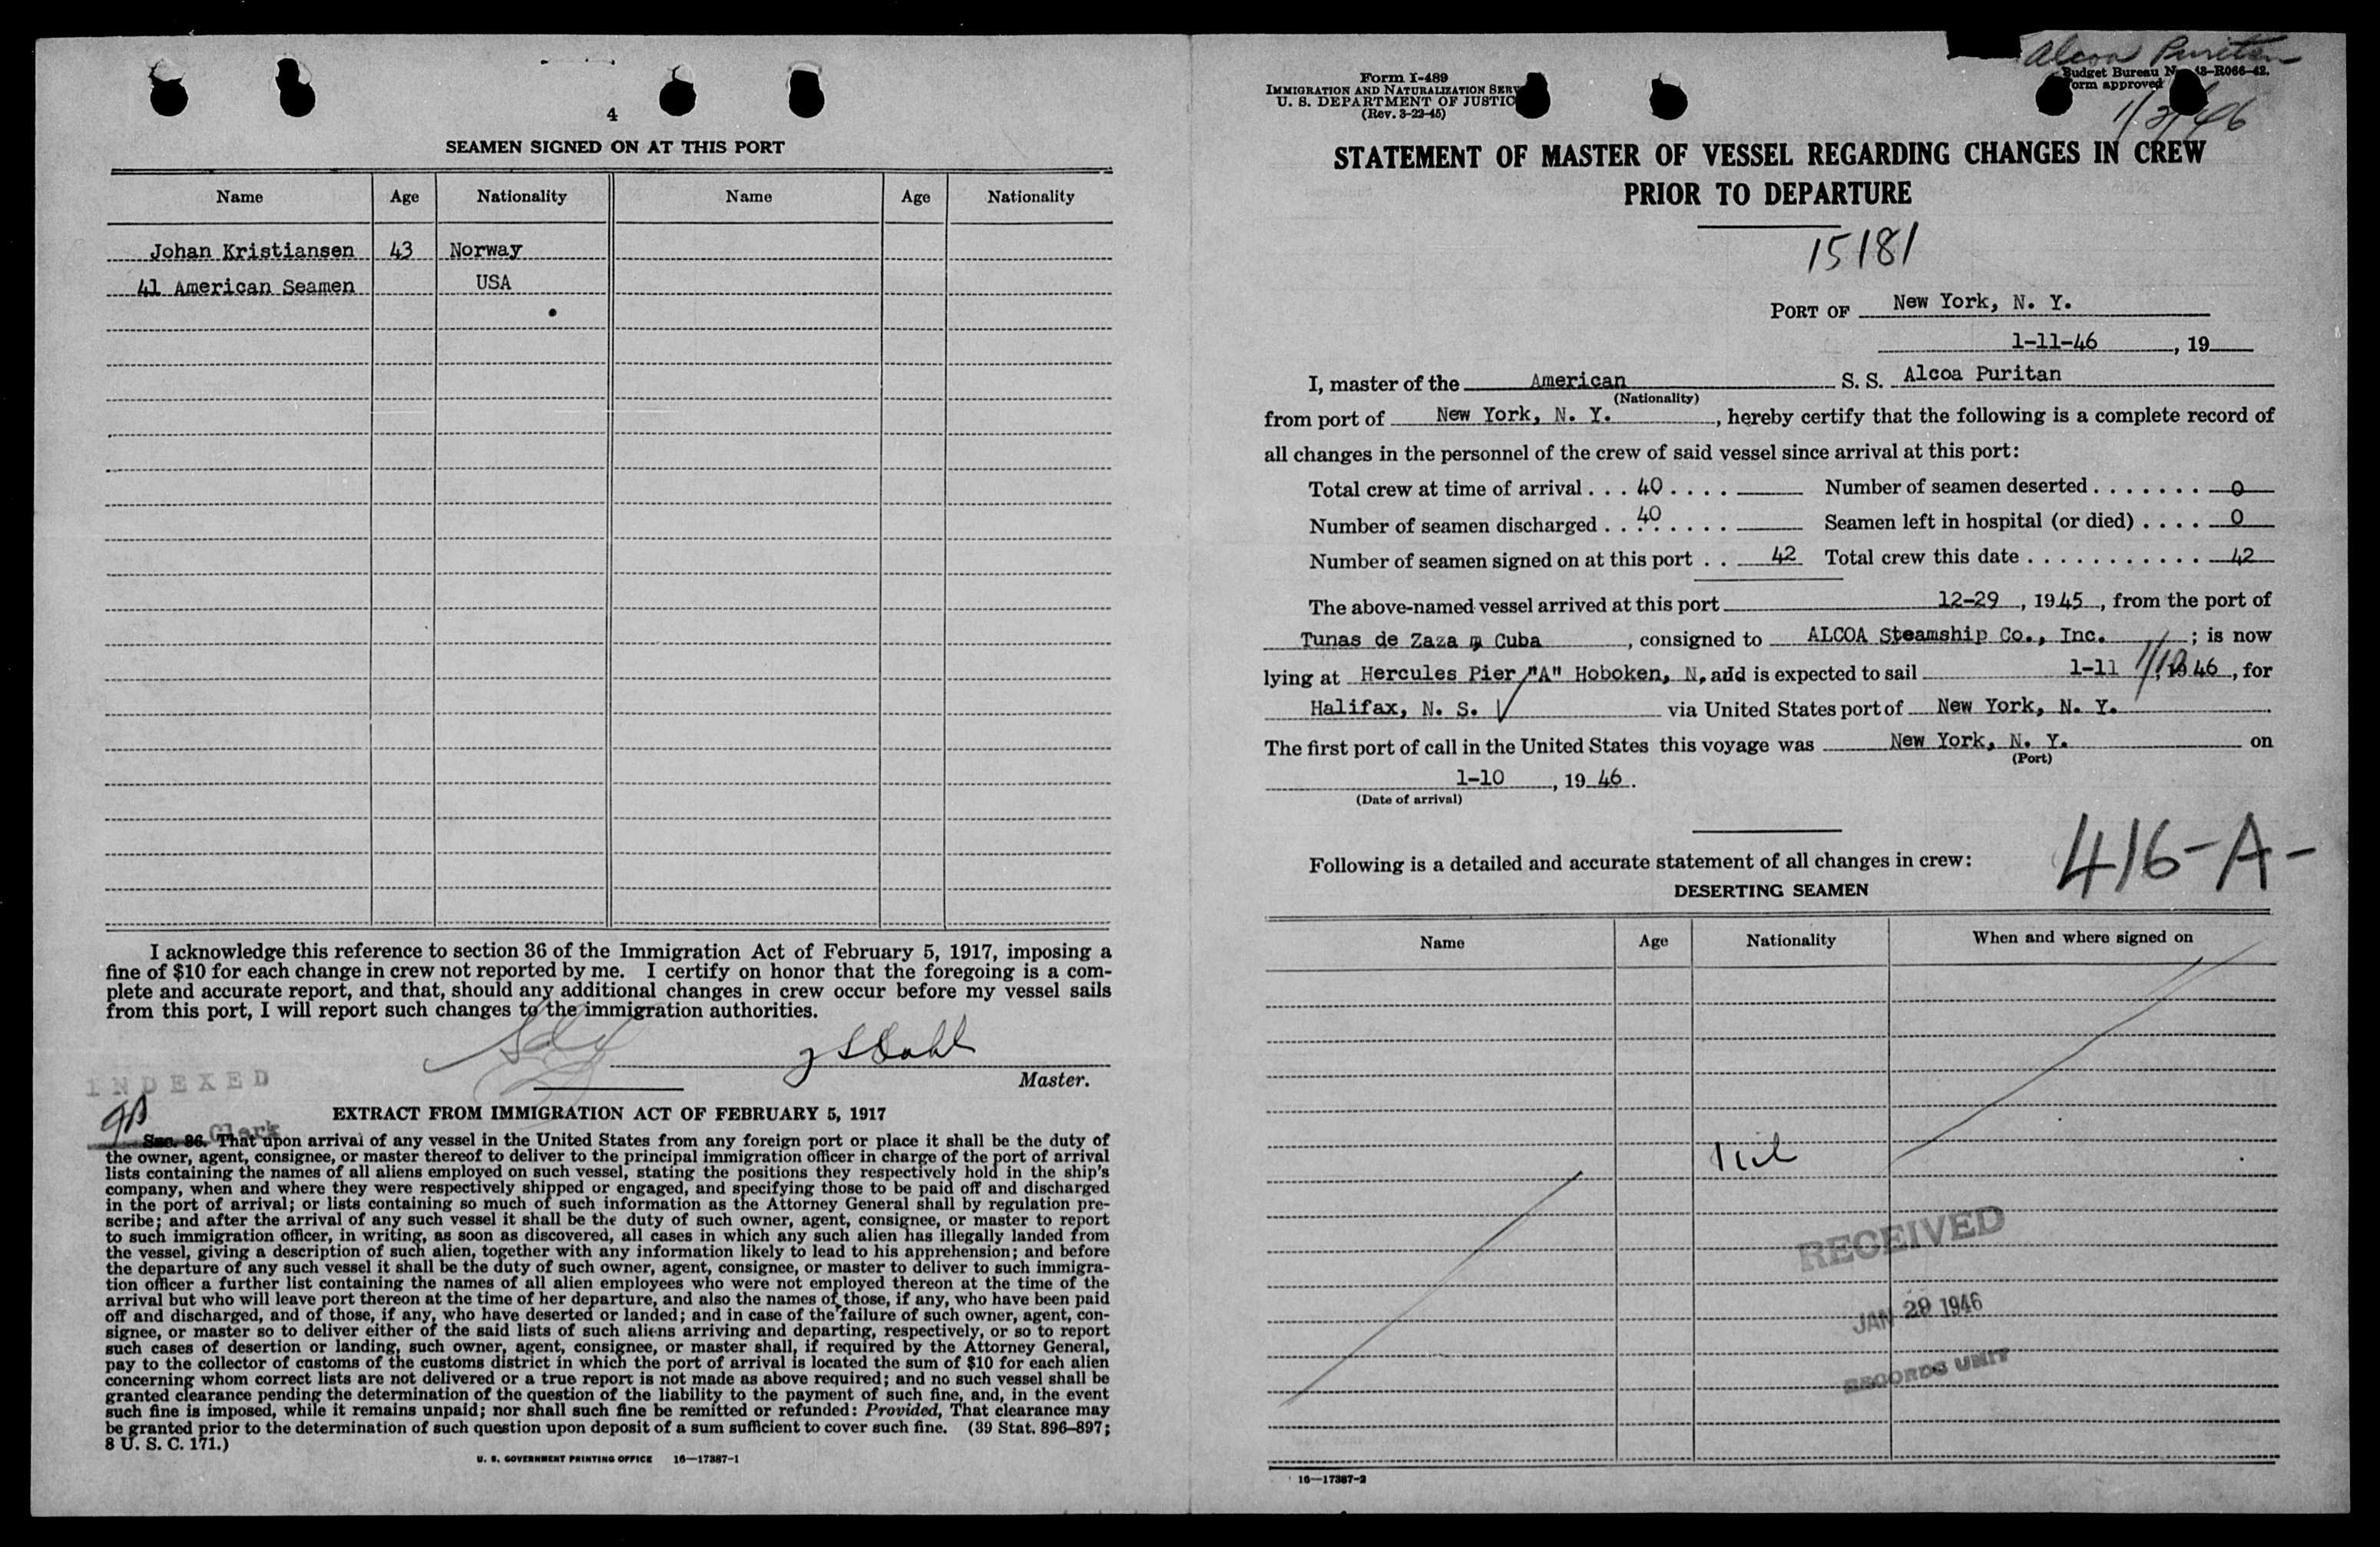 4
SEAMEN SIGNED ON AT THIS PORT
Name Age Nationality Name Age Nationality
Johan Kristiansen 43 Norway
41 American Seamen USA
I acknowledge this reference to section 36 of the Immigration Act of February 5, 1917, imposing a
fine of $10 for each change in crew not reported by me. I certify on honor that the foregoing is a com-
plete and accurate report, and that, should any additional changes in crew occur before my vessel sails
from this port, I will report such changes to the immigration authorities.
Master.
INDEXED
EXTRACT FROM IMMIGRATION ACT OF FEBRUARY 5, 1917
Clerk
Sec. 36. That upon arrival of any vessel in the United States from any foreign port or place it shall be the duty of
the owner, agent, consignee, or master thereof to deliver to the principal immigration officer in charge of the port of arrival
lists containing the names of all aliens employed on such vessel, stating the positions they respectively hold in the ship's
company, when and where they were respectively shipped or engaged, and specifying those to be paid off and discharged
in the port of arrival; or lists containing so much of such information as the Attorney General shall by regulation pre-
scribe; and after the arrival of any such vessel it shall be the duty of such owner, agent, consignee, or master to report
to such immigration officer, in writing, as soon as discovered, all cases in which any such alien has illegally landed from
the vessel, giving a description of such alien, together with any information likely to lead to his apprehension; and before
the departure of any such vessel it shall be the duty of such owner, agent, consignee, or master to deliver to such immigra-
tion officer a further list containing the names of all alien employees who were not employed thereon at the time of the
arrival but who will leave port thereon at the time of her departure, and also the names of those, if any, who have been paid
off and discharged, and of those, if any, who have deserted or landed; and in case of the failure of such owner, agent, con-
signee, or master so to deliver either of the said lists of such aliens arriving and departing, respectively, or so to report
such cases of desertion or landing, such owner, agent, consignee, or master shall, if required by the Attorney General,
pay to the collector of customs of the customs district in which the port of arrival is located the sum of $10 for each alien
concerning whom correct lists are not delivered or a true report is not made as above required; and no such vessel shall be
granted clearance pending the determination of the question of the liability to the payment of such fine, and, in the event
such fine is imposed, while it remains unpaid; nor shall such fine be remitted or refunded: Provided, That clearance may
be granted prior to the determination of such question upon deposit of a sum sufficient to cover such fine. (39 Stat. 896–897;
8 U. S. C. 171.)
U. S. GOVERNMENT PRINTING OFFICE 16—17387-1
Alcoa Puritan
Form I-489
IMMIGRATION AND NATURALIZATION
U. S. DEPARTMENT OF
(Rev. 3-22-45)
Budget Bureau 43-R066-42.
approved
STATEMENT OF MASTER OF VESSEL REGARDING CHANGES IN CREW
PRIOR TO DEPARTURE
15181
PORT OF New York, N. Y.
1-11-46, 19
I, master of the American S. S. Alcoa Puritan
(Nationality)
from port of New York, N. Y., hereby certify that the following is a complete record of
all changes in the personnel of the crew of said vessel since arrival at this port:
Total crew at time of arrival . . . 40 . . . . Number of seamen deserted . . . . . . . 0
Number of seamen discharged . . 40 . . . . Seamen left in hospital (or died) . . . . 0
Number of seamen signed on at this port . . 42 Total crew this date . . . . . . . . . . . . 42
The above-named vessel arrived at this port 12-29, 1945, from the port of
Tunas de Zaza , Cuba, consigned to ALCOA Steamship Co., Inc.; is now
lying at Hercules Pier "A" Hoboken, N. and is expected to sail 1-11, 1946, for
Halifax, N. S. via United States port of New York, N. Y.
The first port of call in the United States this voyage was New York, N. Y. on
(Port)
1-10, 19 46.
(Date of arrival)
416-A-
Following is a detailed and accurate statement of all changes in crew:
DESERTING SEAMEN
Name Age Nationality When and where signed on
Nil
RECEIVED
JAN 29 1946
RECORDS UNIT
16—17387-2